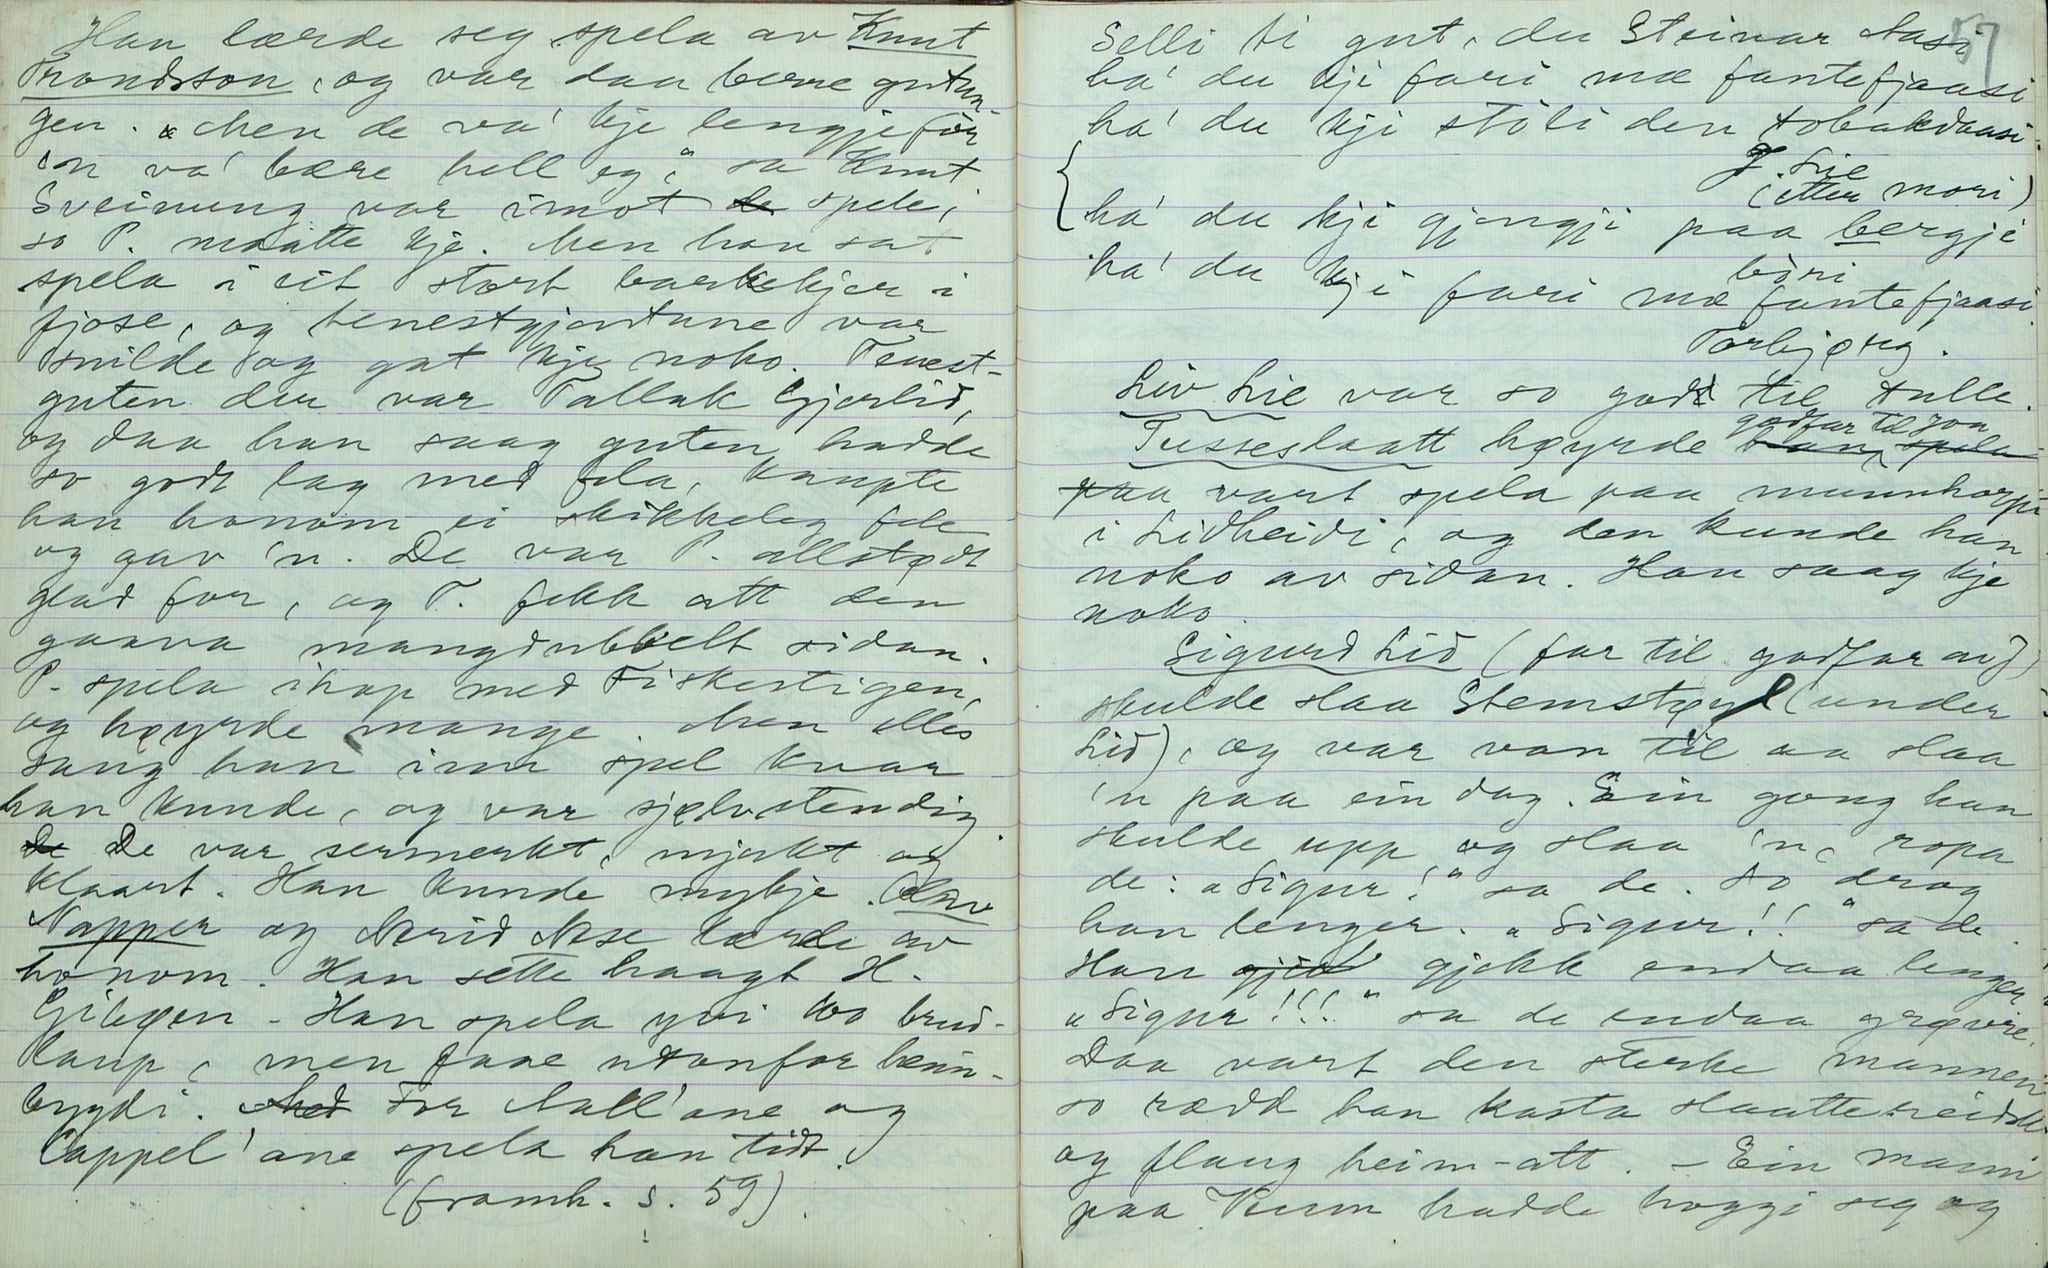 Han lærde seg spela av Knut
Trondsson, og var daa berre gutun-
gen. „Men de va' kje lengje før
'n va' bære hell eg," sa Knut
Sveinung var imot de spele,
so P. maatte kje. Men han sat
spela i eit stort barkekjer i
fjose, og tenestgjentune var
snilde og gat kje noko. Tenest-
guten der var Tallak Gjerlid,
og daa han saag guten hadde
so godt lag med fela, kaupte
han honom ei skikkeleg fele
og gav 'n. De var P. allstødt
glad for, og T. fekk att den
gaava mangdubbelt sidan.
P. spela ihop med Fiskestigen,
og høyrde mange. Men elles
sang han inn spel kvar
han kunde, og var sjølvstendig.
De De var sermerkt, mjukt og
klaart. Han kunde mykje. Olav
Napper og Nerid Nese lærde av
honom. Han sette haagt H.
Gibøen - Han spela yvi 100 brud-
laup, men faae utanfor heim-
bygdi. Med For Aall'ane og
Cappel'ane spela han tidt.
(framh. s. 59)
57
Selli ti gut, du Steinar Aasi
ha' du kji fari mæ fantefjaasi
ha' du kji stoli den tobakdaasi.
J. Lie
(etter mori)
ha' du kji gjongji paa bergji
bori
ha' du kji fari mæ fantefjaasi.
Torbjørg.
Liv Lie var so god til tulle.
godfar til Jon
Tusseslaatt høyrde han spela
paa vart spela paa munnhorpe
i Lidheidi, og den kunde han
noko av sidan. Han saag kje
noko.
Sigurd Lid (far til godfar av J)
skulde slaa Stemstøyl (under
Lid), og var van til aa slaa
'n paa ein dag. Ein gong han
skulde upp og slaa 'n, ropa
de: „Sigur!" sa de. So drog
han lenger. „Sigur!!" sa de.
Han gjekk endaa lenger
„Sigur!!!" sa de endaa grøvre.
Daa vart den sterke mannen
so rædd han kasta slaattereidsk.
og flaug heim-att. - Ein mann
paa Kum hadde hoggi seg og